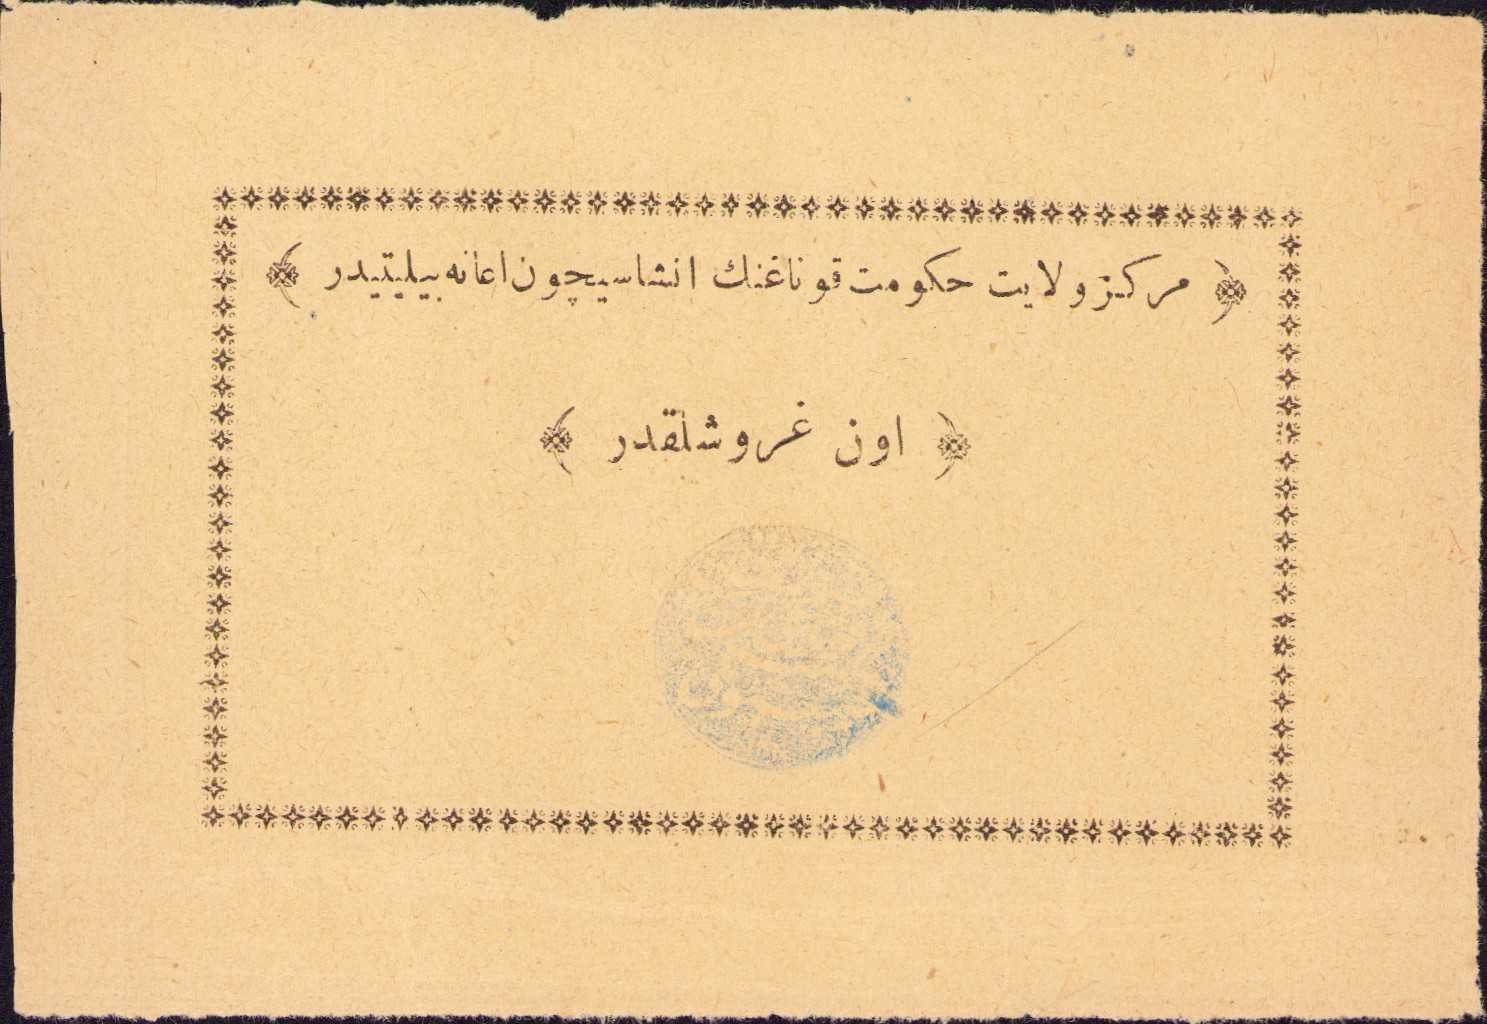 مركز ولايت حكومت قوناغنك انشاسيچون اعانه بيليتيدر
اون غروشلقدر